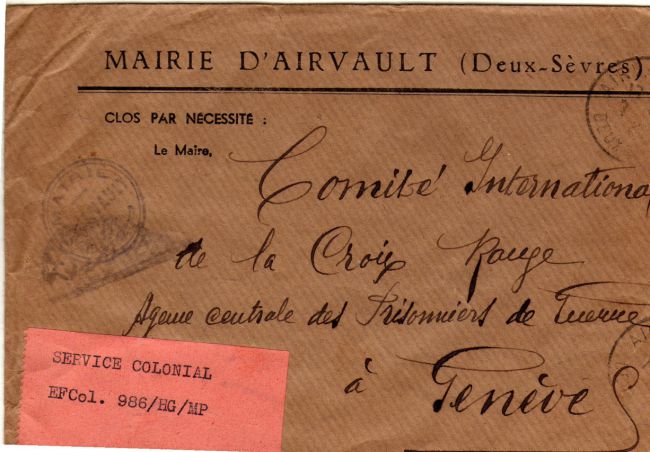 MAIRIE D'AIRVAULT (Deux-Sèvres)
CLOS PAR NÉCESSITÉ :
Le Maire,
Comité International
de la Croix Rouge
Agence centrale des Prisonniers de Guerre
à Genève
SERVICE COLONIAL
EFCol. 986/HG/MP